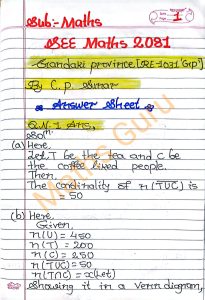 Sub:- Maths
1
SEE Maths 2081
Gandaki province [RE-1031'Gp']
By C.P. Sunar
Answer Sheet
Q.N-1 Ans,
Solⁿ.
(a) Here,
Let T be the tea and C be
the coffee liked people.
Then,
The cardinality of n(TUC) is
= 50
(b) Here,
Given,
n(U) = 450
n(T) = 200
n(C) = 250
n(TUC) = 50
n(TnC) = x(let)
Showing it in a venn diagram,
Maths Guru